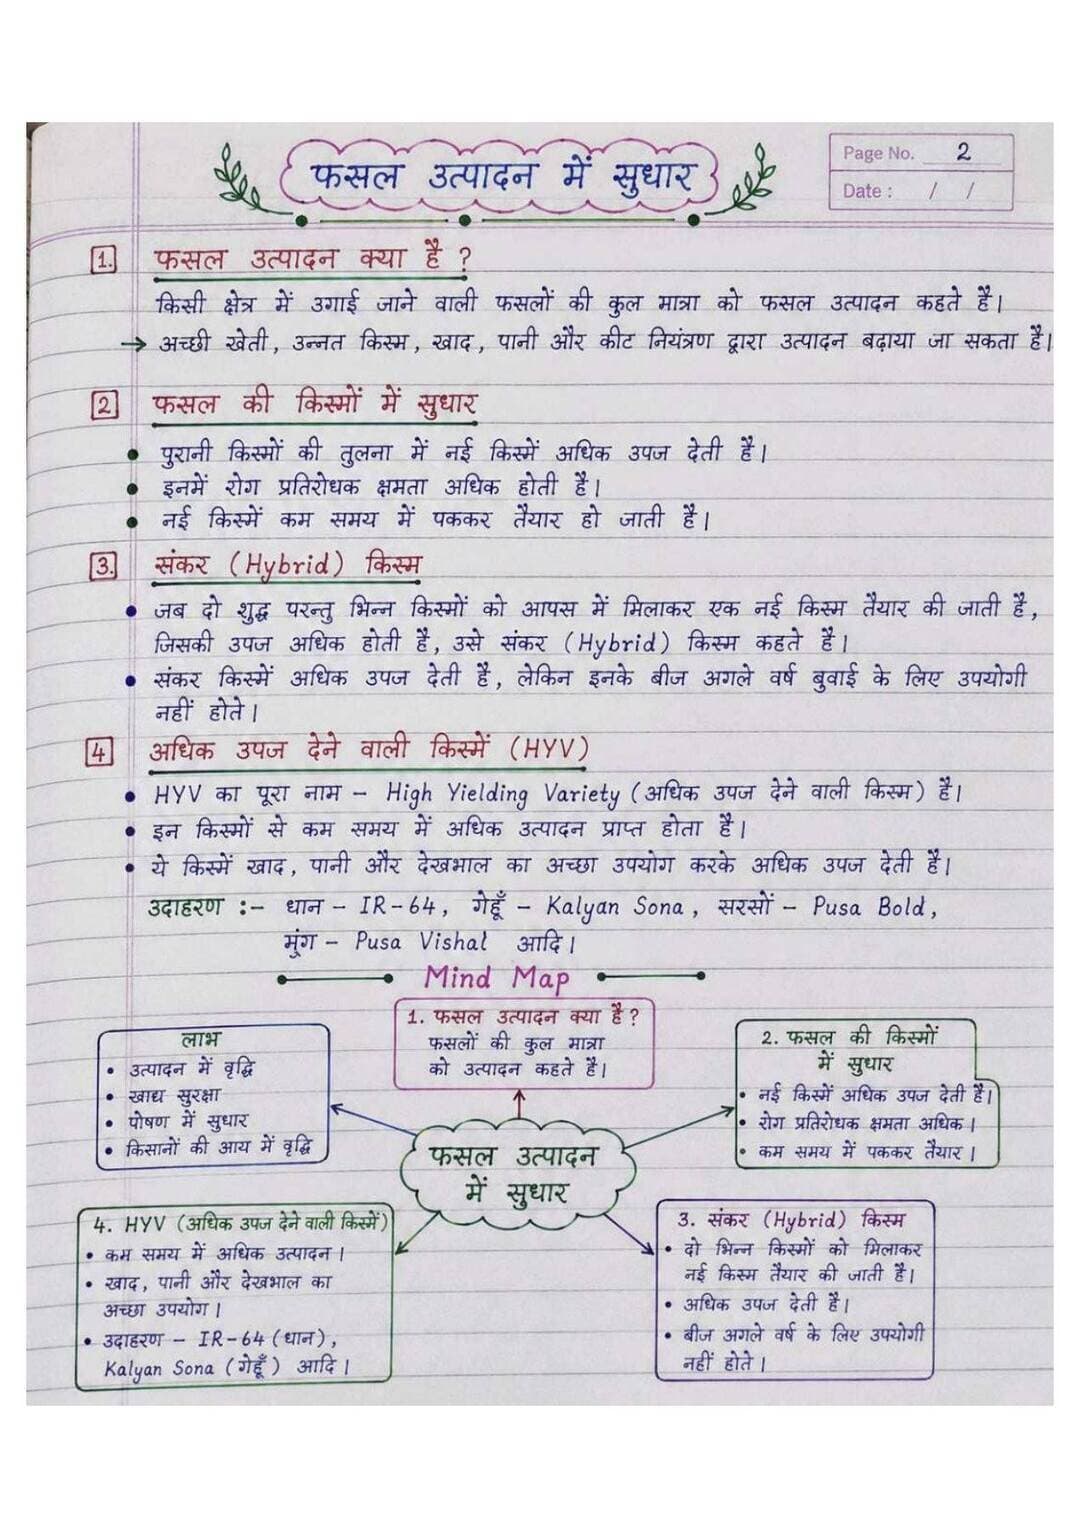 फसल उत्पादन में सुधार
Page No. 2
Date : / /
1. फसल उत्पादन क्या है ?
किसी क्षेत्र में उगाई जाने वाली फसलों की कुल मात्रा को फसल उत्पादन कहते है।
→ अच्छी खेती, उन्नत किस्म, खाद, पानी और कीट नियंत्रण द्वारा उत्पादन बढ़ाया जा सकता है।
2 फसल की किस्मों में सुधार
• पुरानी किस्मों की तुलना में नई किस्में अधिक उपज देती है।
• इनमें रोग प्रतिरोधक क्षमता अधिक होती है।
• नई किस्में कम समय में पककर तैयार हो जाती है।
3. संकर (Hybrid) किस्म
• जब दो शुद्ध परन्तु भिन्न किस्मों को आपस में मिलाकर एक नई किस्म तैयार की जाती है,
जिसकी उपज अधिक होती है, उसे संकर (Hybrid) किस्म कहते है।
• संकर किस्में अधिक उपज देती है, लेकिन इनके बीज अगले वर्ष बुवाई के लिए उपयोगी
नहीं होते।
4 अधिक उपज देने वाली किस्में (HYV)
• HYV का पूरा नाम - High Yielding Variety (अधिक उपज देने वाली किस्म) है।
• इन किस्मों से कम समय में अधिक उत्पादन प्राप्त होता है।
• ये किस्में खाद, पानी और देखभाल का अच्छा उपयोग करके अधिक उपज देती है।
उदाहरण :- धान - IR-64, गेहूँ - Kalyan Sona, सरसों - Pusa Bold,
मूंग - Pusa Vishal आदि।
Mind Map
1. फसल उत्पादन क्या है?
फसलों की कुल मात्रा
को उत्पादन कहते है।
लाभ
• उत्पादन में वृद्धि
• खाद्य सुरक्षा
• पोषण में सुधार
• किसानों की आय में वृद्धि
2. फसल की किस्मों
में सुधार
• नई किस्में अधिक उपज देती है।
• रोग प्रतिरोधक क्षमता अधिक।
• कम समय में पककर तैयार।
फसल उत्पादन
में सुधार
4. HYV (अधिक उपज देने वाली किस्में)
• कम समय में अधिक उत्पादन।
• खाद, पानी और देखभाल का
अच्छा उपयोग।
• उदाहरण - IR-64 (धान),
Kalyan Sona (गेहूँ) आदि।
3. संकर (Hybrid) किस्म
• दो भिन्न किस्मों को मिलाकर
नई किस्म तैयार की जाती है।
• अधिक उपज देती है।
• बीज अगले वर्ष के लिए उपयोगी
नहीं होते।